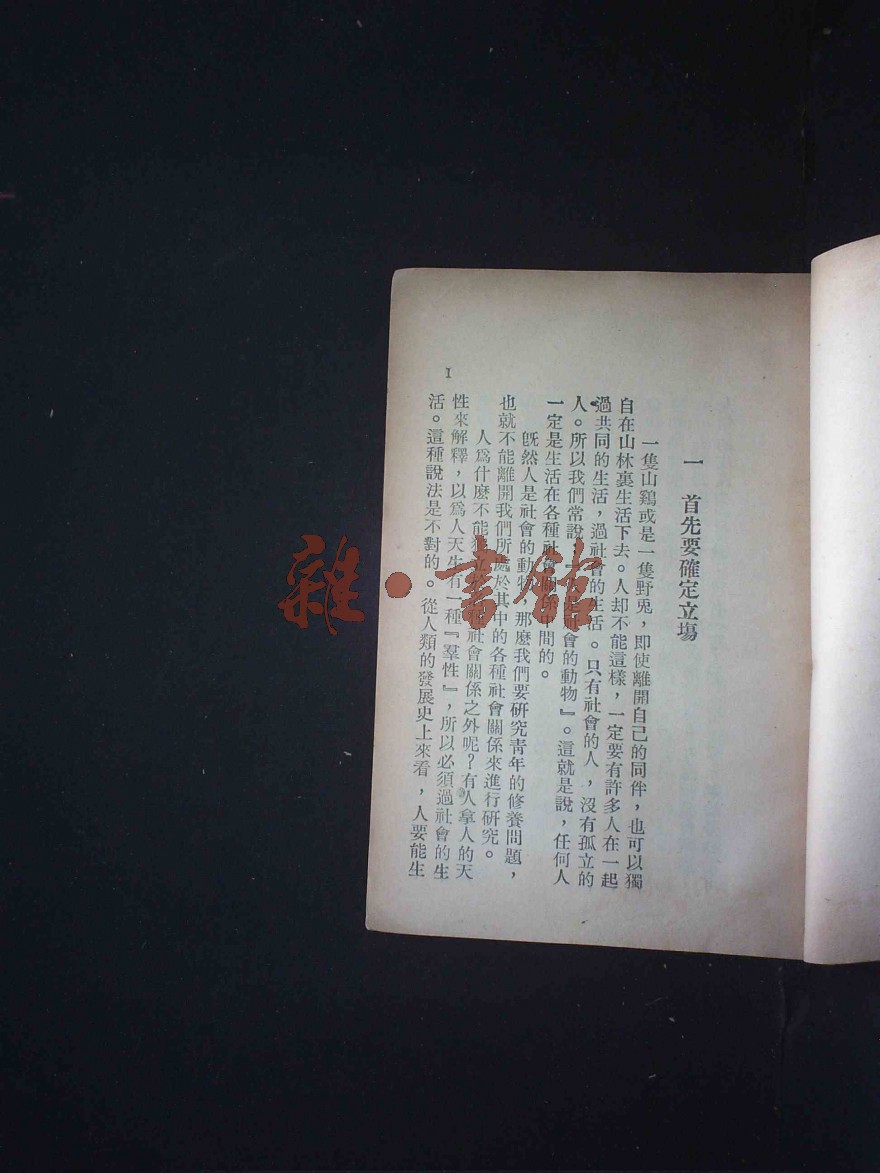 一　首先要確定立場
一隻山鷄或是一隻野兎，即使離開自己的同伴，也可以獨
自在山林裏生活下去。人却不能這樣，一定要有許多人在一起
過共同的生活，過社會的生活。只有社會的人，沒有孤立的
人。所以我們常說，『人是社會的動物』。這就是說，任何人
一定是生活在各種社會關係中間的。
旣然人是社會的動物，那麽我們要硏究靑年的修養問題，
也就不能離開我們所處於其中的各種社會關係來進行硏究。
人爲什麽不能獨立於社會關係之外呢？有人拿人的天
性來解釋，以爲人天生有一種『羣性』，所以必須過社會的生
活。這種說法是不對的。從人類的發展史上來看，人要能生
1
雜·書館